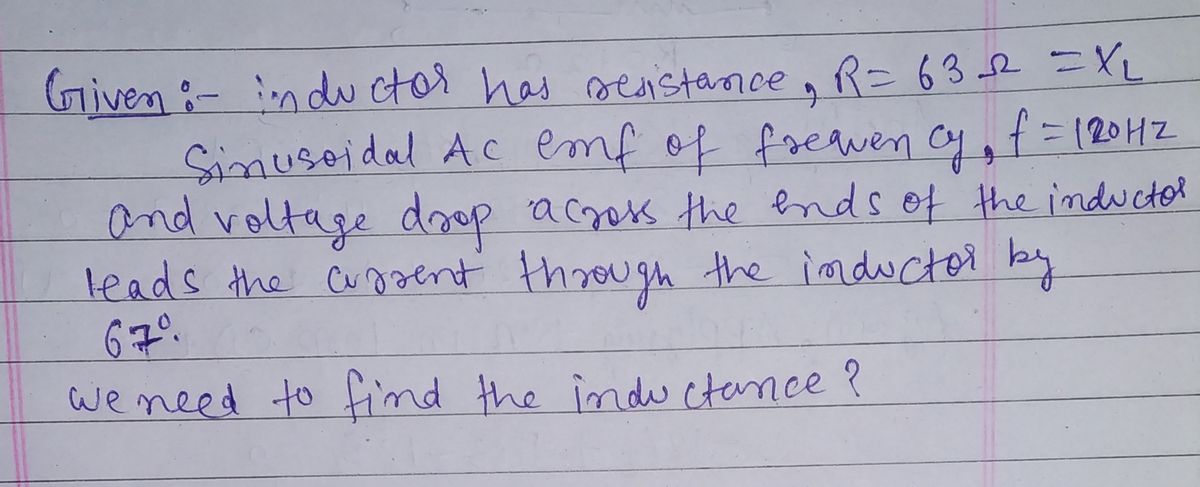 Given :- inductor has resistance, R = 63 Ω = XL
Sinusoidal AC emf of frequency, f = 120HZ
and voltage drop across the ends of the inductor
leads the current through the inductor by
67°.
we need to find the inductance ?